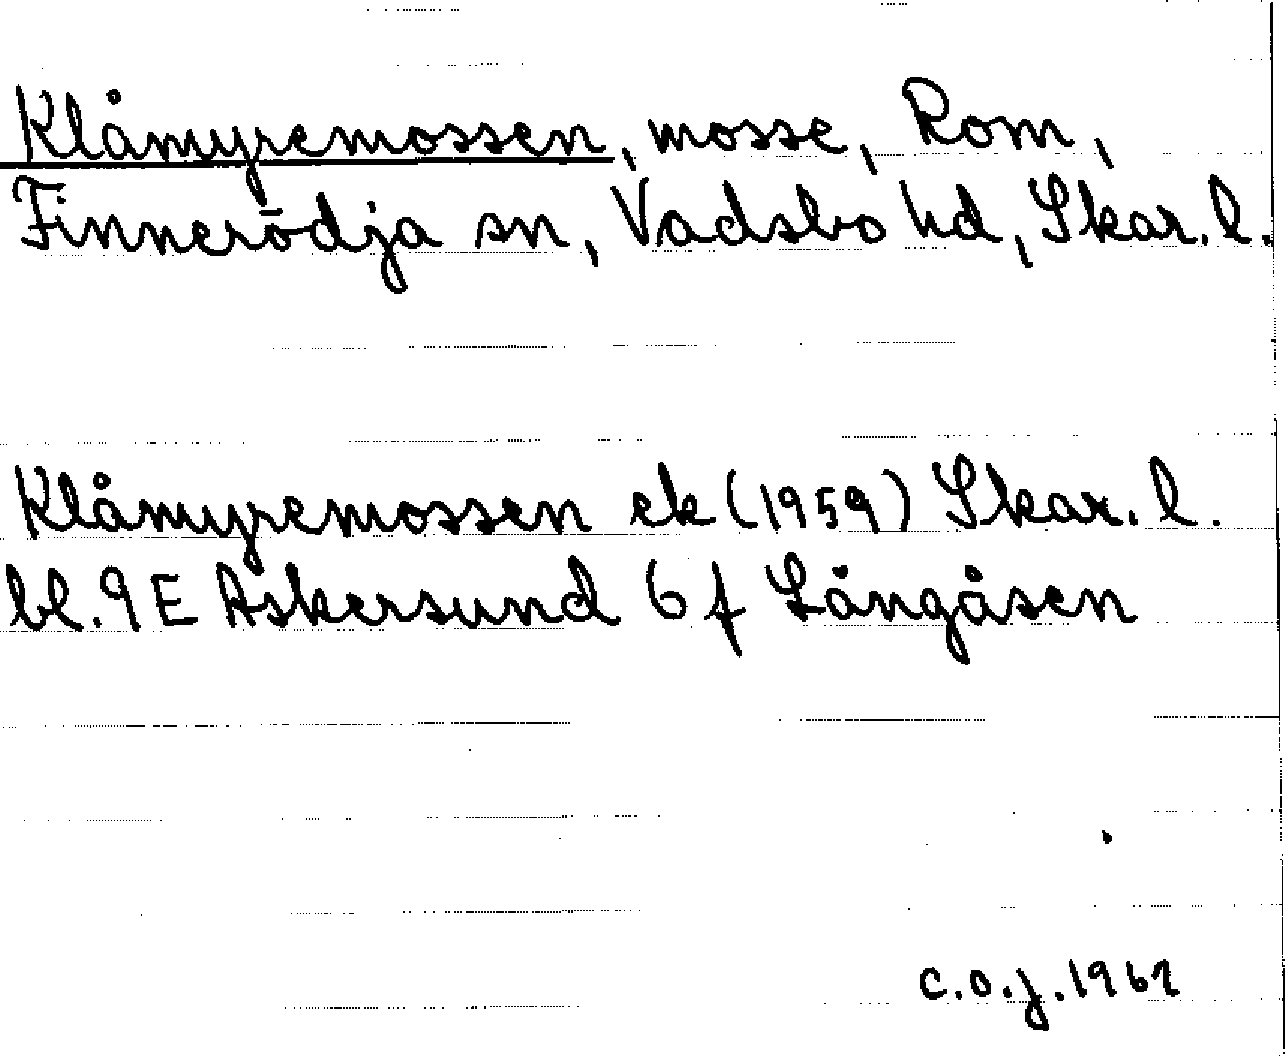 Klåmyremossen, mosse, Rom,
Finnerödja sn, Vadsbo hd, Skar. l.
Klåmyremossen ek (1959) Skar. l.
bl. 9 E Askersund 6 f Långåsen
c.o.j. 1962